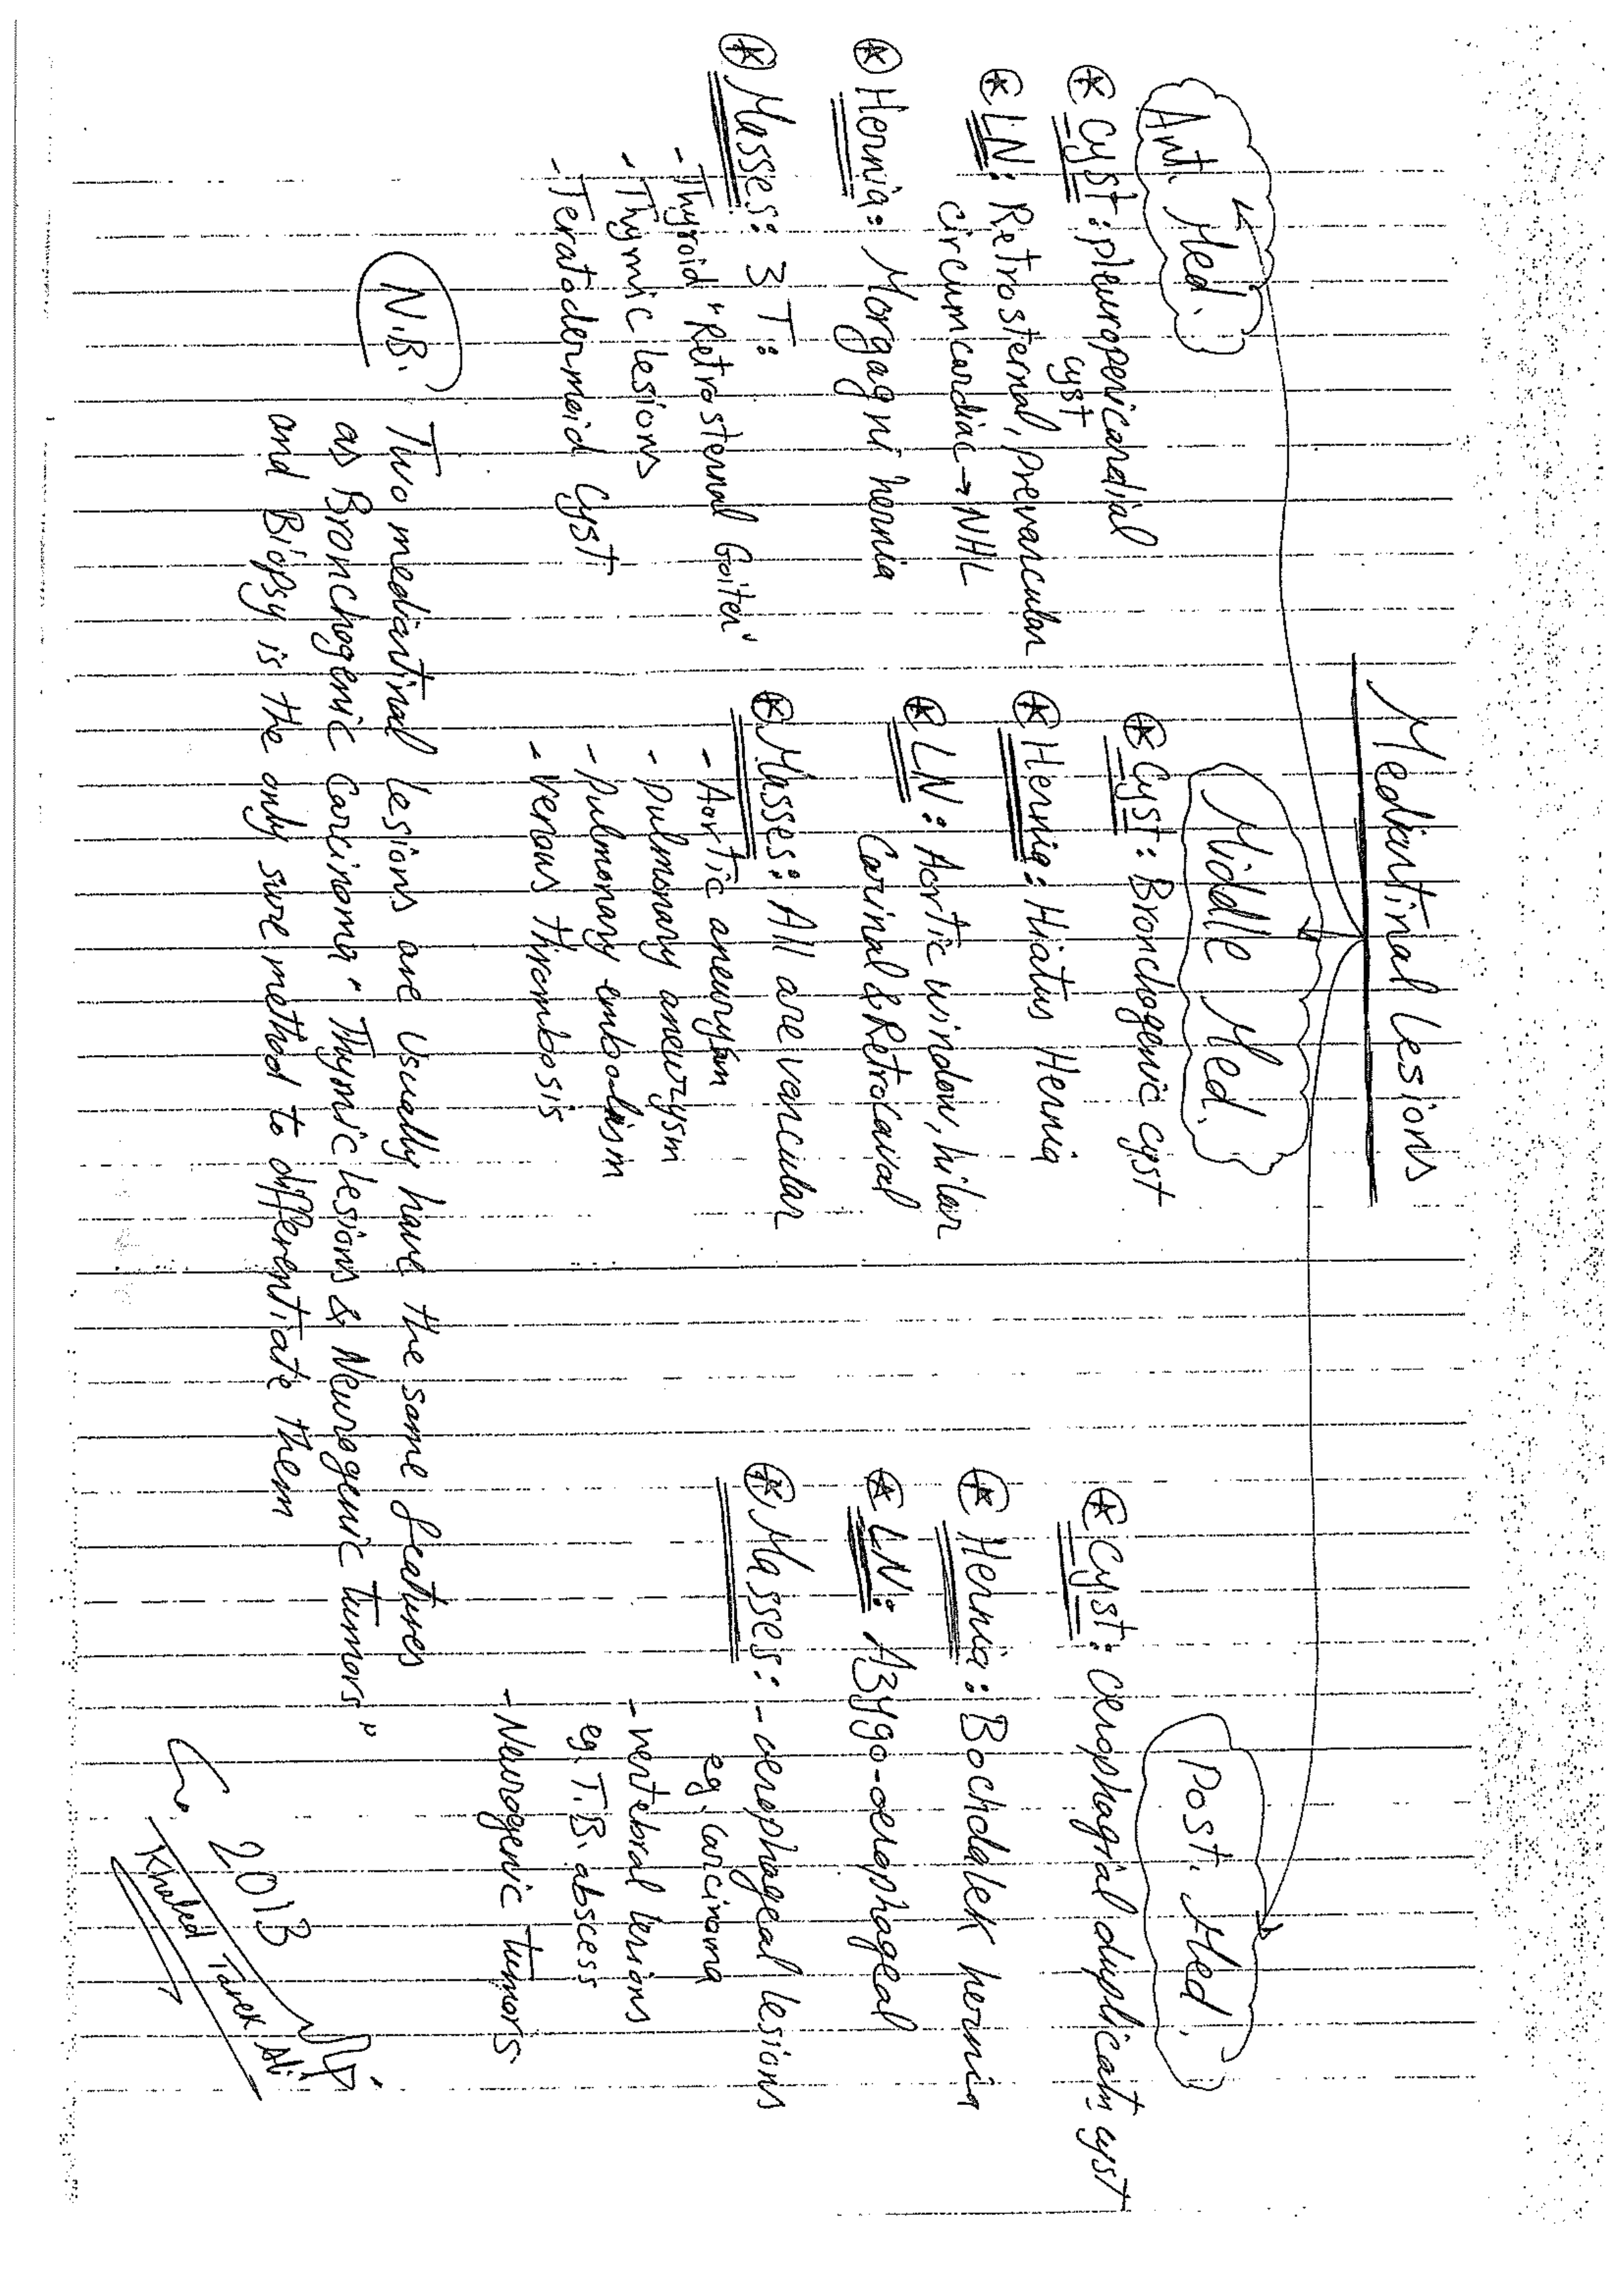 Mediastinal Lesions
Ant. Med.
* Cyst: pleuropericardial
cyst
* LN: Retrosternal, prevascular
circumcardiac → NHL
* Hernia: Morgagni hernia
* Masses: 3 T:
- Thyroid "Retrosternal Goiter"
- Thymic lesions
- Teratodermoid cyst
Middle Med.
* Cyst: Bronchogenic cyst
* Hernia: Hiatus Hernia
* LN: Aortic window, hilar
Carinal & Retrocaval
* Masses: All are vascular
- Aortic aneurysm
- pulmonary aneurysm
- pulmonary embolism
- venous thrombosis
Post. Med.
* Cyst: oesophagial duplicatn cyst
* Hernia: Bochdalek hernia
* LN: Azygo-oesophageal
* Masses: - oesophageal lesions
eg. carcinoma
- vertebral lesions
eg. T.B. abscess
- Neurogenic tumors
N.B. Two mediastinal lesions are usually have the same features
as Bronchogenic carcinoma "Thymic lesions & Neurogenic tumors"
and Biopsy is the only sure method to differentiate them
2013
Khaled Tarek Ali